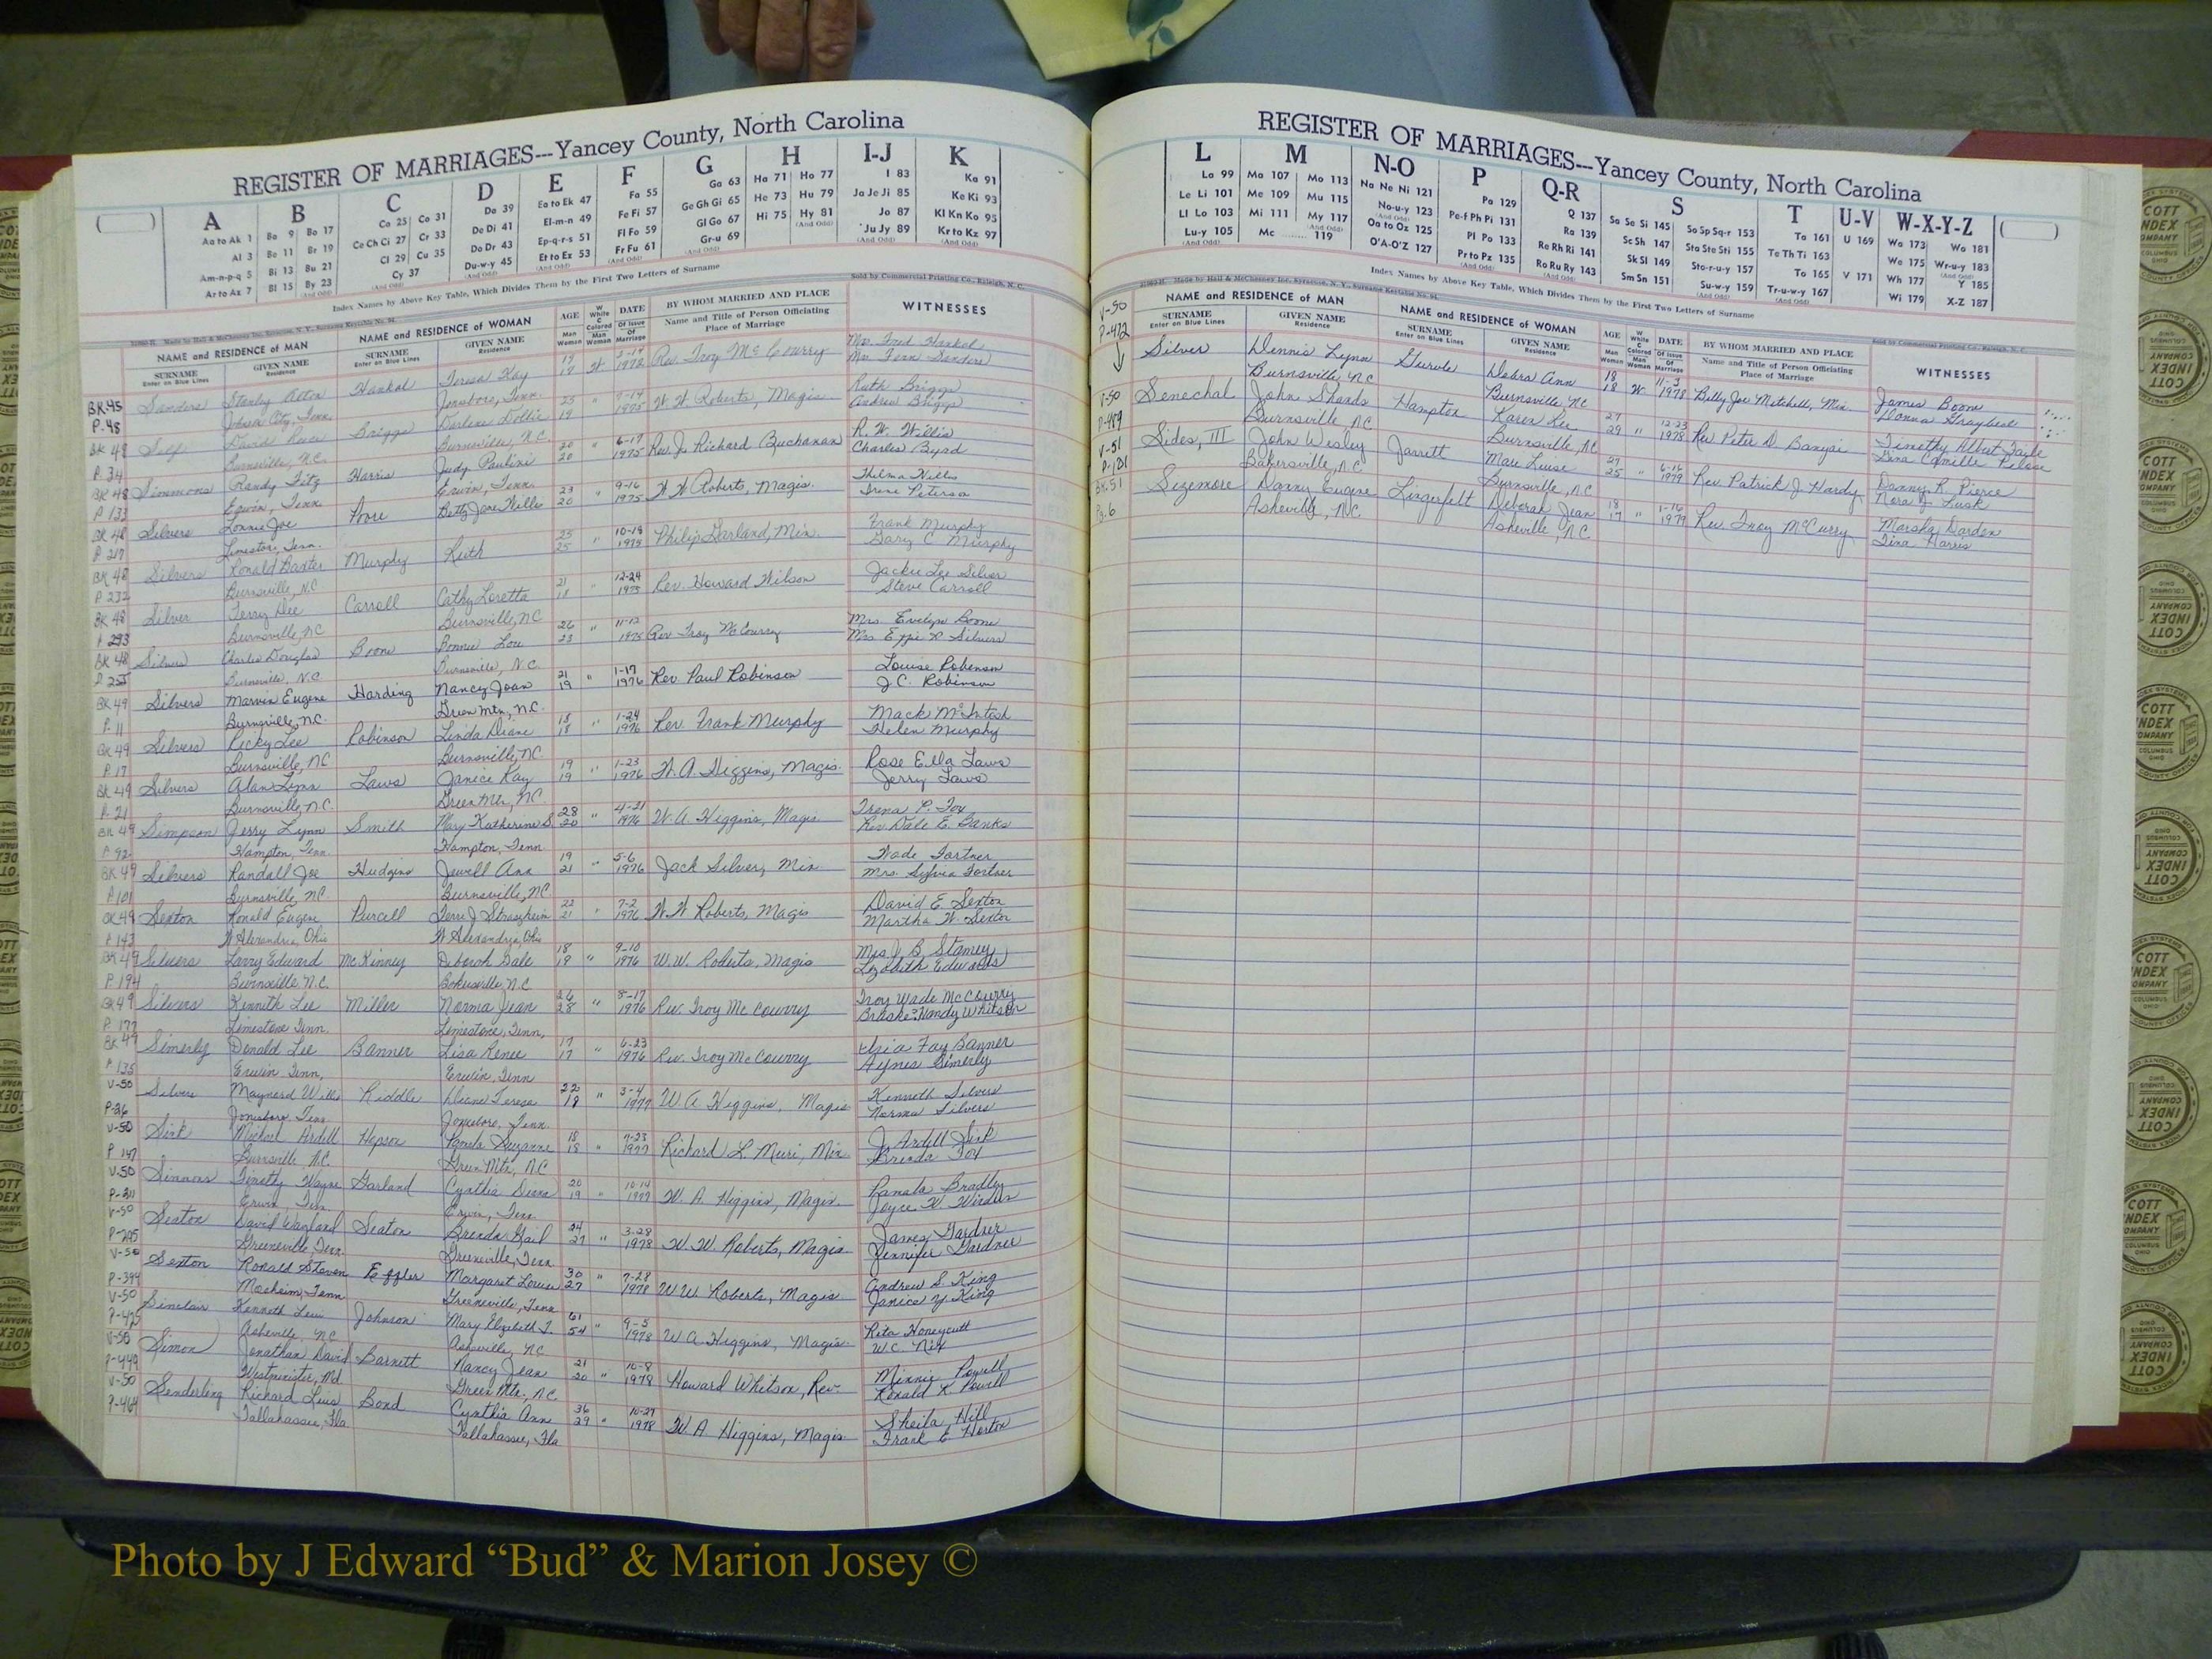 REGISTER OF MARRIAGES---Yancey County, North Carolina
A B C D E F G H I-J K
Aa to Ak 1 Ba 9 Bo 17 Ca 25 Co 31 Da 39 Ea to Ek 47 Fa 55 Ga 63 Ha 71 Ho 77 I 83 Ka 91
Al 3 Be 11 Br 19 Ce Ch Ci 27 Cr 33 De Di 41 El-m-n 49 Fe Fi 57 Ge Gh Gi 65 He 73 Hu 79 Ja Je Ji 85 Ke Ki 93
Am-n-p-q 5 Bi 13 Bu 21 Cl 29 Cu 35 Do Dr 43 Ep-q-r-s 51 Fl Fo 59 Gl Go 67 Hi 75 Hy 81 Jo 87 Kl Kn Ko 95
Ar to Az 7 Bl 15 By 23 Cy 37 Du-w-y 45 Et to Ez 53 Fr Fu 61 Gr-u 69 Ju Jy 89 Kr to Kz 97
Index Names by Above Key Table, Which Divides Them by the First Two Letters of Surname
Sold by Commercial Printing Co., Raleigh, N. C.
NAME and RESIDENCE OF MAN NAME and RESIDENCE OF WOMAN AGE DATE BY WHOM MARRIED AND PLACE WITNESSES
SURNAME Enter on Blue Lines GIVEN NAME Residence SURNAME Enter on Blue Lines GIVEN NAME Residence Man Woman W White C Colored Of Issue Of Marriage Name and Title of Person Officiating Place of Marriage
BK 45 Sanders Stanley Hankal Teresa Kay 17 W 1972 Rev. Troy McCourry Mr. Fred Hankal
P. 48 Johnson City, Tenn. Jonesboro, Tenn.
BK 48 Self David Briggs Darlene Dollie 19 " 1975 W. W. Roberts, Magis. Ruth Briggs Andrew Briggs
P. 34 Burnsville, N.C. Burnsville, N.C.
BK 48 Simmons Randy Fitz Harris Judy Pauline 20 20 " 6-17 1975 Rev. J. Richard Buchanan R. W. Willis Charles Byrd
P. 133 Erwin, Tenn. Erwin, Tenn.
BK 48 Silvers Lonnie Joe Poore Betty Jane Willis 23 20 " 9-16 1975 W. W. Roberts, Magis. Thelma Willis Irene Peterson
P. 217 Limestone, Tenn.
BK 48 Silvers Ronald Baxter Murphy Ruth 25 25 " 10-18 1975 Philip Garland, Min. Frank Murphy Gary C. Murphy
P. 232 Burnsville, N.C.
BK 48 Silver Terry Dee Carroll Cathy Loretta 21 18 " 12-24 1975 Rev. Howard Wilson Jackie Lee Silver Steve Carroll
P 293 Burnsville, N.C. Burnsville, N.C.
BK 48 Silver Charles Douglas Boone Bonnie Lou 26 23 " 11-12 1975 Rev. Troy McCourry Mrs. Evelyn Boone Mrs Effie R. Silvers
Burnsville, N.C. Burnsville, N.C.
BK 49 Silvers Marvin Eugene Harding Nancy Joan 21 19 " 1-17 1976 Rev. Paul Robinson Louise Robinson J.C. Robinson
P. 11 Burnsville, N.C. Green Mtn, N.C.
BK 49 Silvers Ricky Lee Robinson Linda Diane 18 18 " 1-24 1976 Rev. Frank Murphy Mack McIntosh Helen Murphy
P. 17 Burnsville, NC Burnsville, N.C.
BK 49 Silvers Alan Lynn Laws Janice Kay 19 19 " 1-23 1976 W. A. Higgins, Magis. Rose Ella Laws Jerry Laws
P. 21 Burnsville, N.C. Green Mtn, N.C.
BK 49 Simpson Jerry Lynn Smith Mary Katherine S. 28 20 " 4-21 1976 W. A. Higgins, Magis Trena P. Fox Rev. Dale E. Banks
P 92 Hampton, Tenn. Hampton, Tenn.
BK 49 Silvers Randall Joe Hudgins Jewell Ann 19 21 " 5-6 1976 Jack Silver, Min Wade Fortner Mrs. Sylvia Fortner
P 101 Burnsville, N.C. Burnsville, N.C.
BK 49 Sexton Ronald Eugene Purcell Terri J Straszheim 22 21 " 7-2 1976 W. W. Roberts, Magis David E. Sexton Martha W. Sexton
P 143 W Alexandria, Ohio W Alexandria, Ohio
BK 49 Silvers Larry Edward McKinney Deborah Gale 18 19 " 9-10 1976 W.W. Roberts, Magis Mrs. J. B. Stamey Edwards
P. 194 Burnsville, N.C. Bakersville, N.C
BK 49 Silvers Kenneth Lee Miller Norma Jean 26 28 " 8-17 1976 Rev. Troy McCourry Troy Wade McCourry
P. 177 Limestone Tenn. Limestone, Tenn.
BK 49 Simerly Donald Lee Banner Lisa Renee 17 17 " 6-23 1976 Rev. Troy McCourry Fay Banner Agnes Simerly
P 135 Erwin Tenn, Erwin, Tenn
V-50 Silvers Maynard Riddle Diane Teresa 22 18 " 3-4 1977 W A Higgins, Magis Kenneth Silvers Norma Silvers
P-26 Jonesboro, Tenn Jonesboro, Tenn.
V-50 Sirk Michael Ardell Hopson Pamela Suzanne 18 18 " 1977 Richard L. Muri, Min. J. Ardell Sirk Brenda Fox
P 147 Burnsville, N.C. Green Mtn, N.C
V-50 Simmons Timothy Wayne Garland Cynthia 20 19 " 10-14 1977 W. A. Higgins, Magis. Pamala Bradley
P-311 Erwin Tenn. Erwin, Tenn.
V-50 Seaton David Wayland Seaton Brenda Gail 24 27 " 3-28 1978 W. W. Roberts, Magis. James Gardner Jennifer Gardner
Greeneville, Tenn Greeneville, Tenn
V-50 Sexton Ronald Steven Effler Margaret Louise 30 27 " 7-28 1978 W W Roberts, Magis. Andrew S. King Janice Y. King
P-394 Mosheim, Tenn Greeneville, Tenn
V-50 Sinclair Kenneth Johnson Mary Elizabeth T. 61 54 " 9-5 1978 W A Higgins, Magis. Rita Honeycutt W.C. Nix
P-425 Asheville, N.C Asheville, N.C
V-50 Simon Jonathan David Barnett Nancy Jean 21 20 " 10-8 1978 Howard Whitson, Rev. Minnie Powell Ronald K Powell
P-449 Westminister, Md. Green Mtn. N.C.
V-50 Senderling Richard Bond Cynthia Ann 36 29 " 10-27 1978 W. A Higgins, Magis. Sheila Hill Frank E Horton
P-464 Tallahassee, Fla Tallahassee, Fla
REGISTER OF MARRIAGES---Yancey County, North Carolina
L M N-O P Q-R S T U-V W-X-Y-Z
La 99 Ma 107 Mo 113 Na Ne Ni 121 Pa 129 Q 137 Sa Se Si 145 So Sp Sq-r 153 Ta 161 U 169 Wa 173 Wo 181
Le Li 101 Me 109 Mu 115 No-u-y 123 Pe-f Ph Pi 131 Ra 139 Sc Sh 147 Sta Ste Sti 155 Te Th Ti 163 We 175 Wr-u-y 183
Ll Lo 103 Mi 111 My 117 Oa to Oz 125 Pl Po 133 Re Rh Ri 141 Sk Sl 149 Sto-r-u-y 157 To 165 V 171 Wh 177 Y 185
Lu-y 105 Mc 119 O'A-O'Z 127 Pr to Pz 135 Ro Ru Ry 143 Sm Sn 151 Su-w-y 159 Tr-u-w-y 167 Wi 179 X-Z 187
Index Names by Above Key Table, Which Divides Them by the First Two Letters of Surname
NAME and RESIDENCE OF MAN NAME and RESIDENCE OF WOMAN AGE DATE BY WHOM MARRIED AND PLACE WITNESSES
SURNAME Enter on Blue Lines GIVEN NAME Residence SURNAME Enter on Blue Lines GIVEN NAME Residence Man Woman W White C Colored Of Issue Of Marriage Name and Title of Person Officiating Place of Marriage
V-50 P-472 Silver Dennis Lynn Debra Ann 18 18 W. 11-3 1978 Billy Joe Mitchell, Min. James Boone Donna
Burnsville, NC Burnsville, NC
V-50 Senechal John Hampton Karen Lee 27 29 " 12-23 1978 Rev Peter D. Timothy Albert Gina Camille
P-489 Burnsville, NC Burnsville, NC
V-51 Sides, III John Wesley Jarrett Marc Luise 27 25 " 6-16 1979 Rev. Patrick J Hardy Danny R. Pierce Nora J. Lusk
P-121 Bakersville, N.C Burnsville, N.C
BK. 51 Sizemore Danny Eugene Lingerfelt Deborah Jean 18 17 " 1-16 1979 Rev. Troy McCurry Marsha Darden Tina Harris
Pg. 6 Asheville, N.C. Asheville, N.C
Photo by J Edward “Bud” & Marion Josey ©
COTT INDEX COMPANY COLUMBUS OHIO